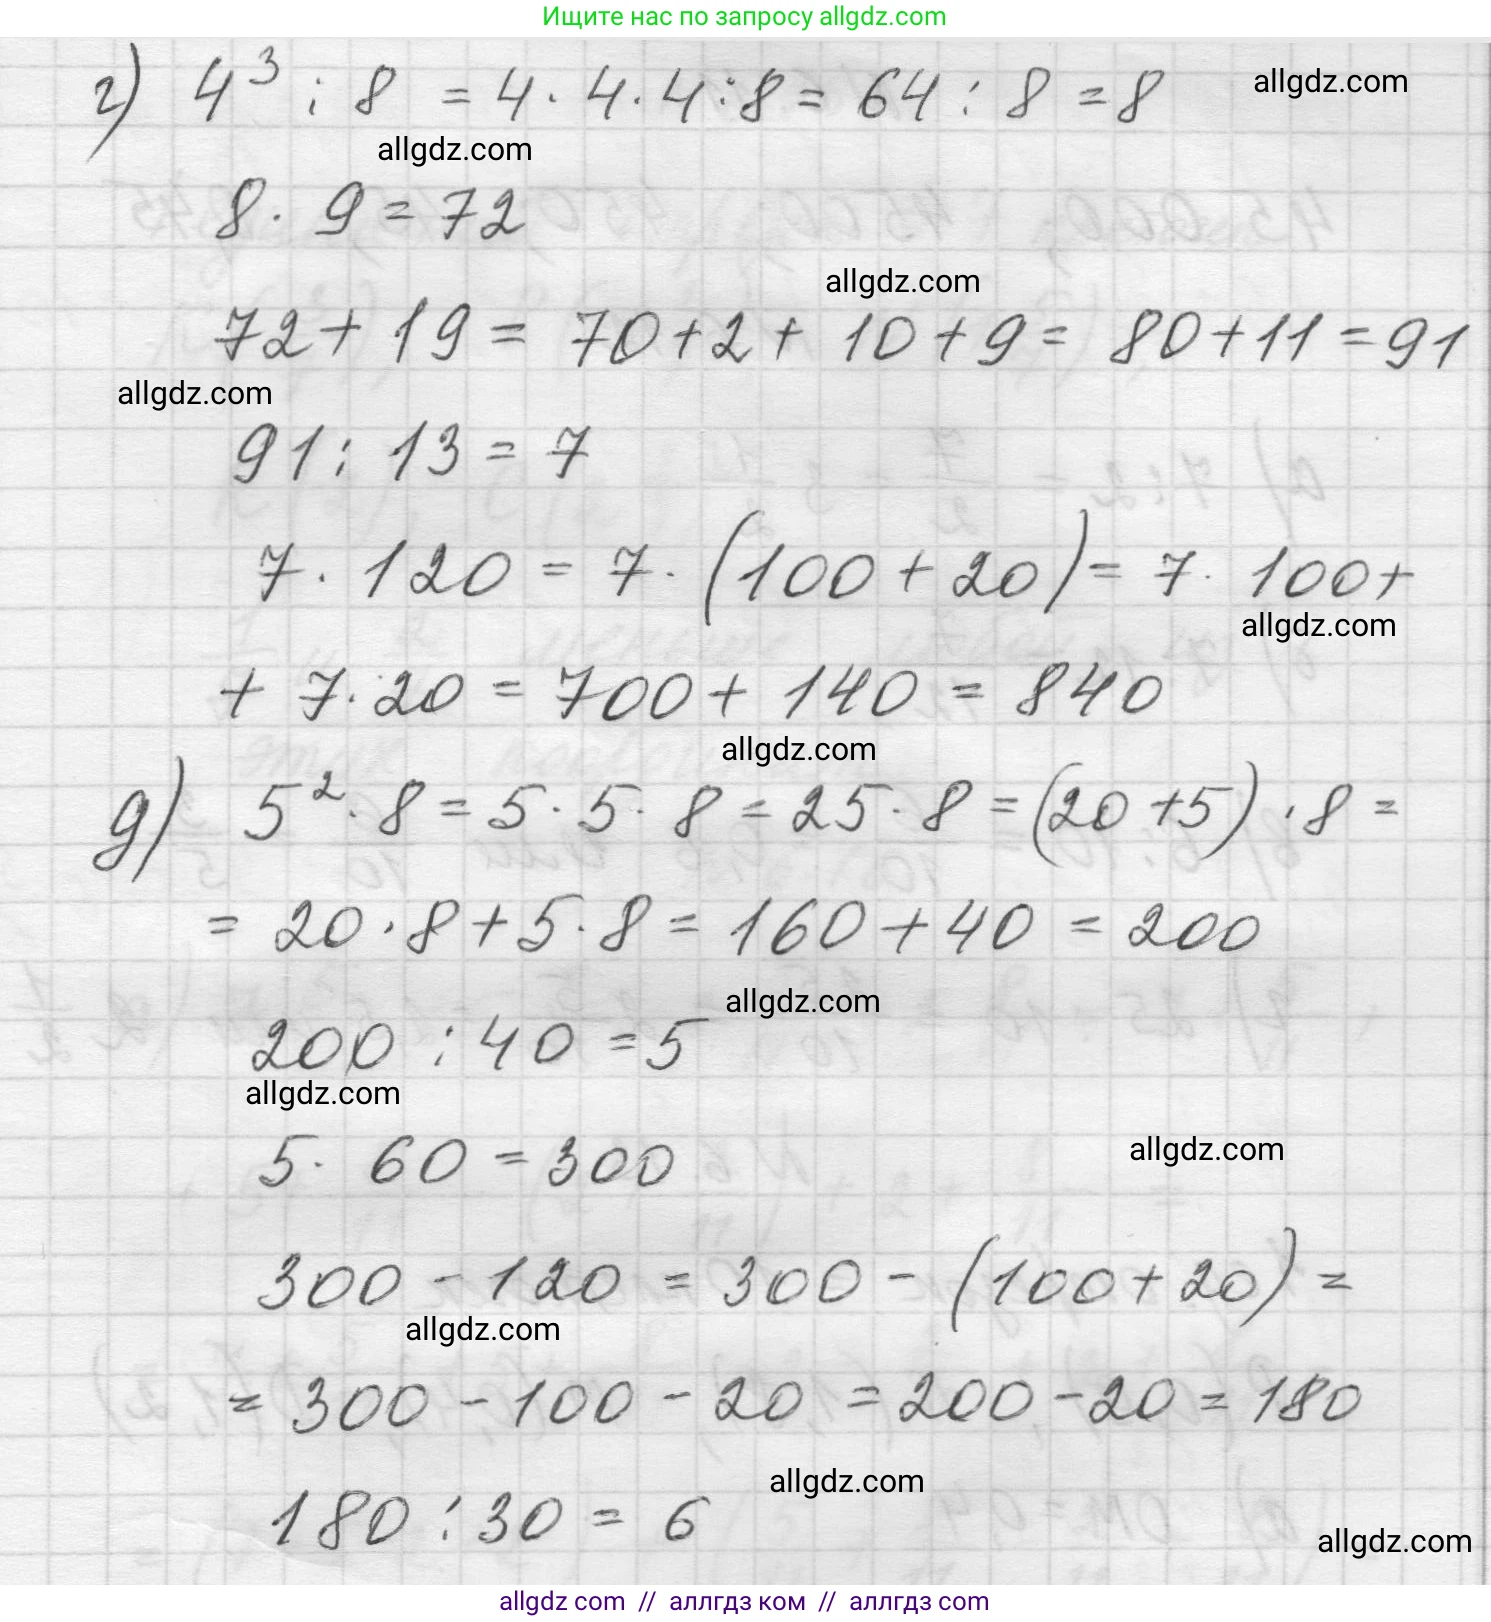 Ищите нас по запросу allgdz.com
г) 4³ : 8 = 4 · 4 · 4 : 8 = 64 : 8 = 8
allgdz.com
allgdz.com
8 · 9 = 72
allgdz.com
72 + 19 = 70 + 2 + 10 + 9 = 80 + 11 = 91
allgdz.com
91 : 13 = 7
7 · 120 = 7 · (100 + 20) = 7 · 100 +
allgdz.com
+ 7 · 20 = 700 + 140 = 840
allgdz.com
д) 5² · 8 = 5 · 5 · 8 = 25 · 8 = (20 + 5) · 8 =
= 20 · 8 + 5 · 8 = 160 + 40 = 200
allgdz.com
200 : 40 = 5
allgdz.com
5 · 60 = 300
allgdz.com
300 - 120 = 300 - (100 + 20) =
allgdz.com
= 300 - 100 - 20 = 200 - 20 = 180
allgdz.com
180 : 30 = 6
allgdz.com
allgdz.com // аллгдз ком // аллгдз com